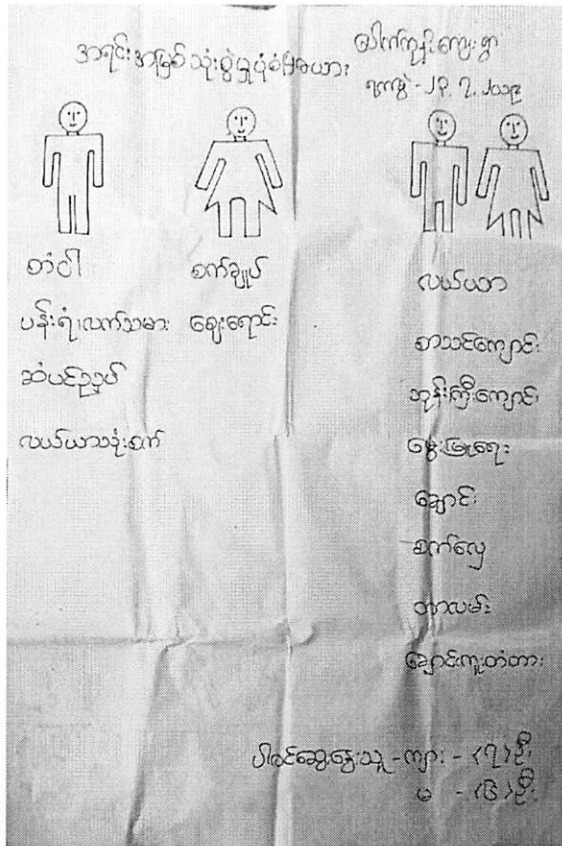 အရင်းအမြစ်သုံးစွဲမှုပုံစံပြဇယား
ပေါက်ကုန်းကျေးရွာ
ရက်စွဲ - ၂၃. ၇. ၂၀၁၉
တံငါ
ပန်းရံ၊လက်သမား
ဆံပင်ညှပ်
လယ်ယာသုံးစက်
စက်ချုပ်
ဈေးရောင်း
လယ်ယာ
စာသင်ကျောင်း
ဘုန်းကြီးကျောင်း
မွေးမြူရေး
ချောင်း
စက်လှေ
တာလမ်း
ချောင်းကူးတံတား
ပါဝင်ဆွေးနွေးသူ - ကျား - (၇)ဦး
မ - (၆)ဦး